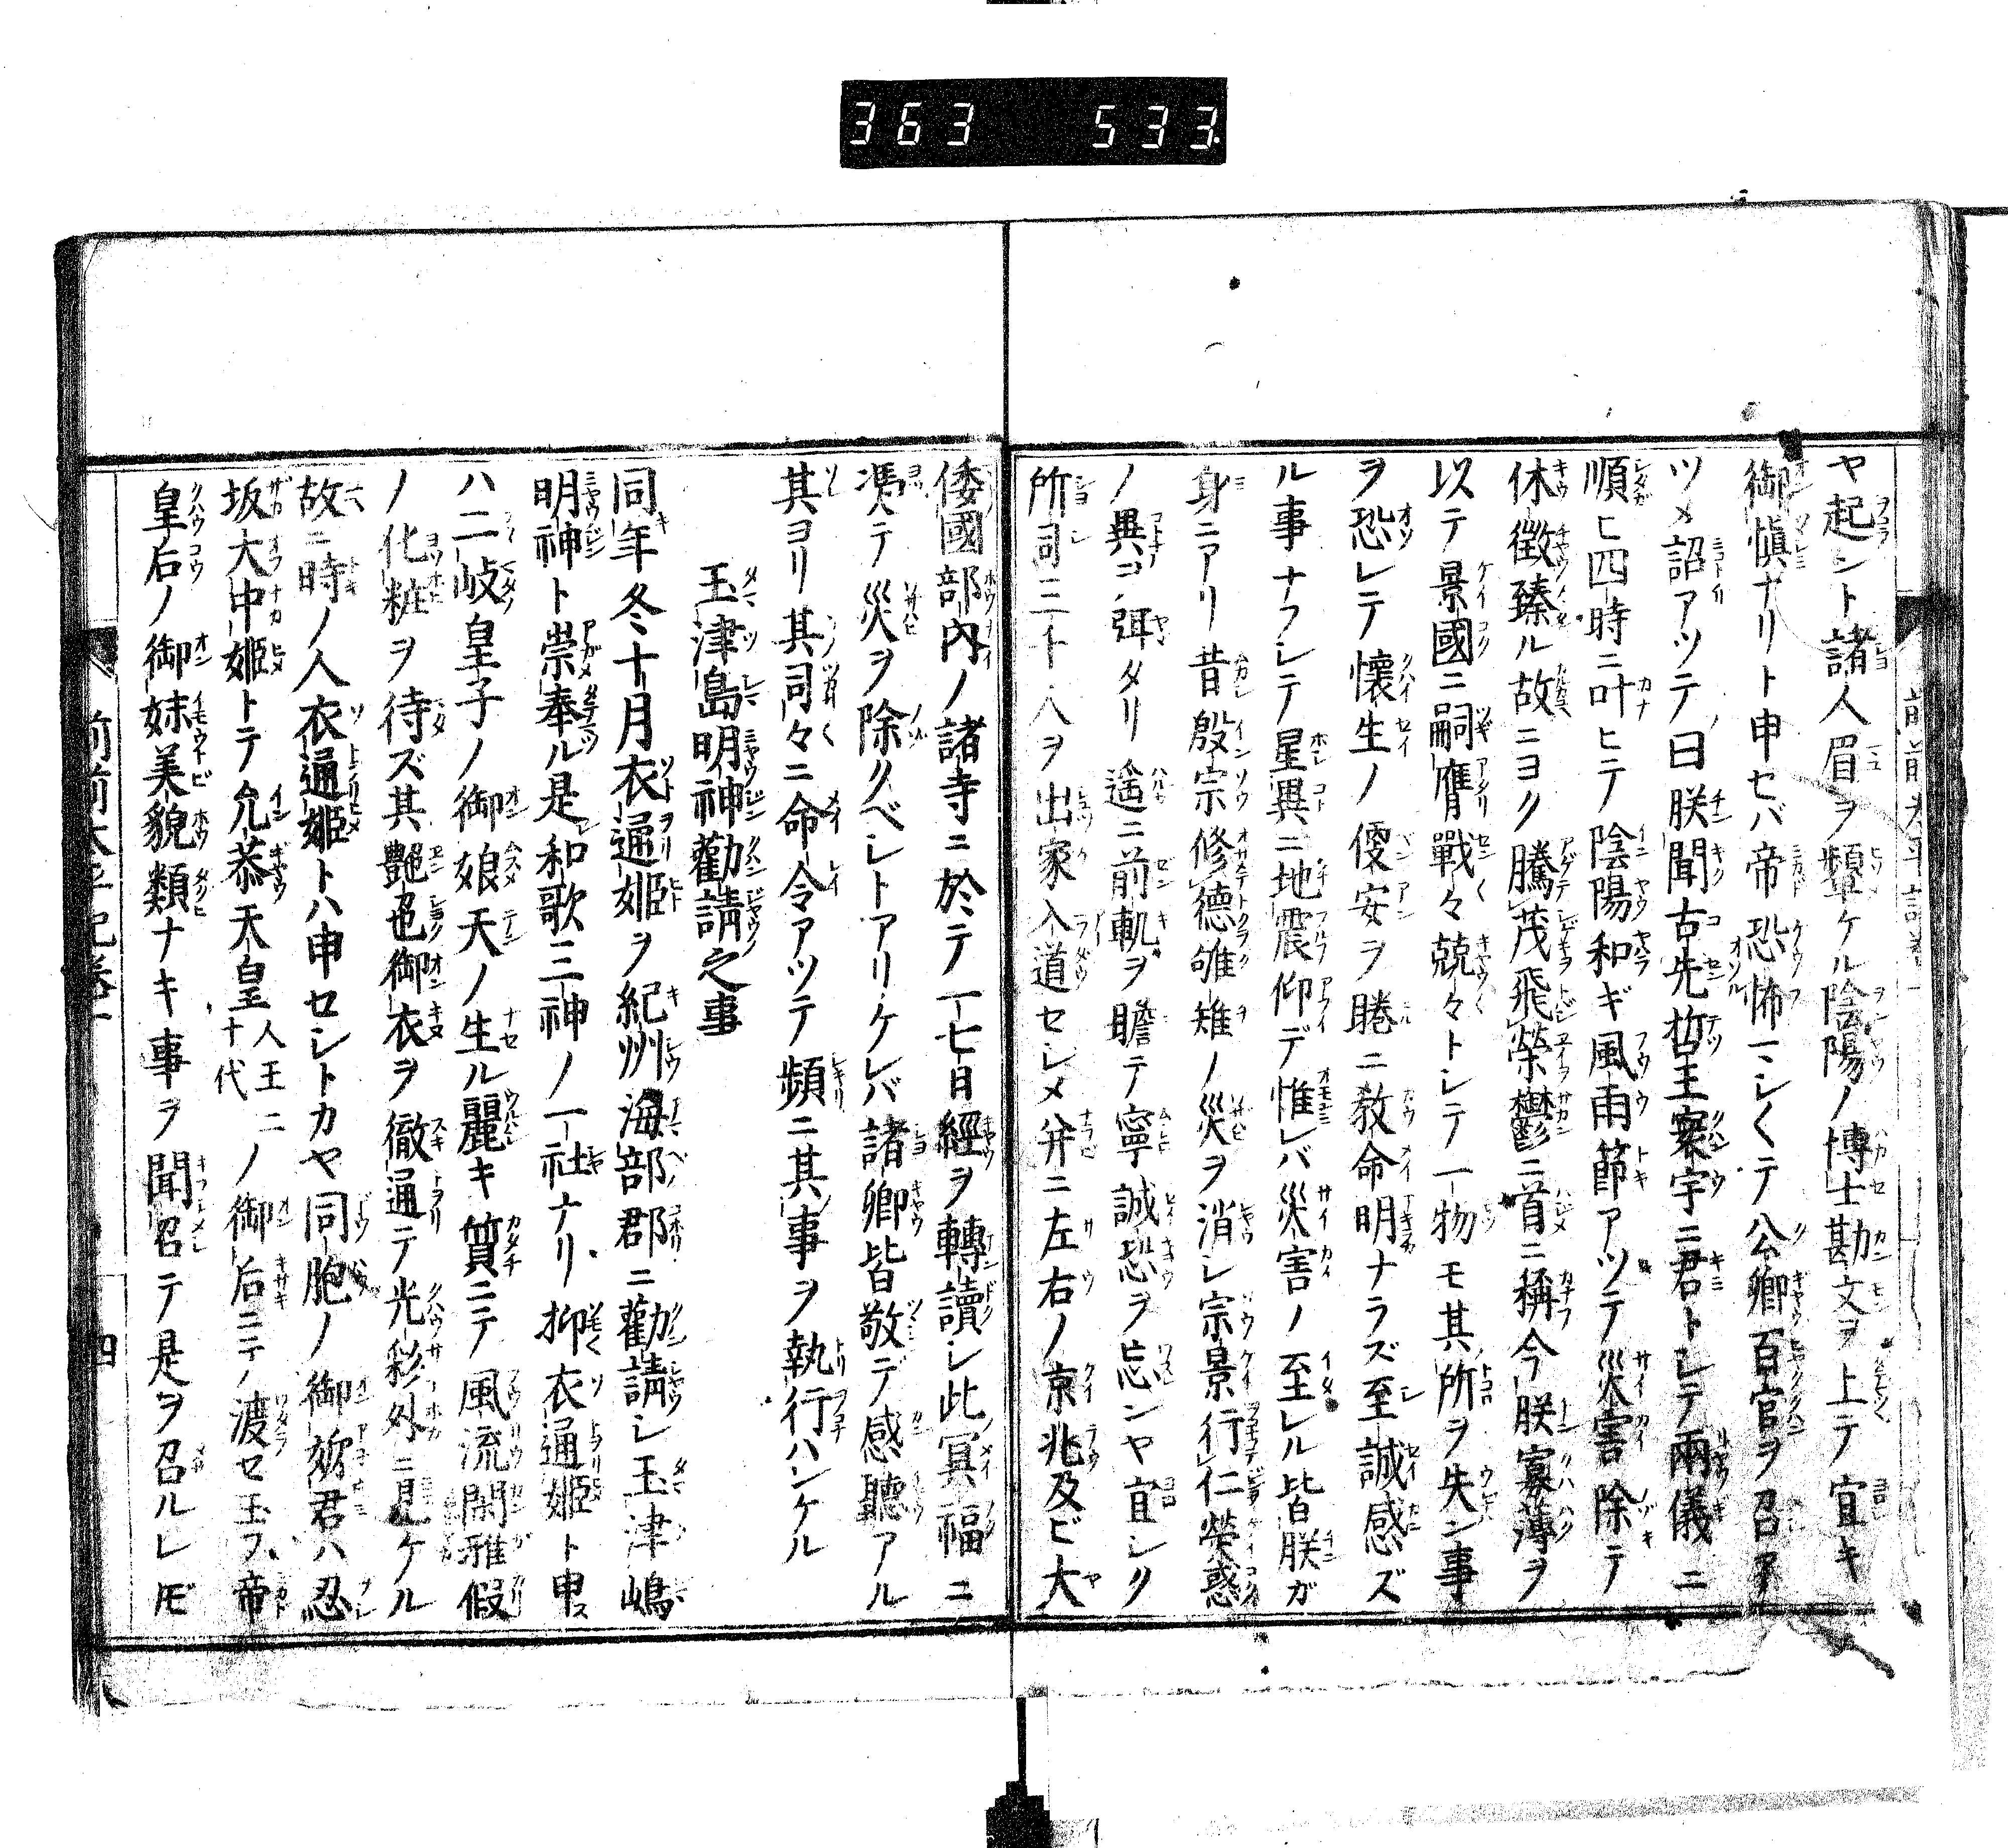 363 533
ヤ起ント諸人眉ヲ顰ケル陰陽ノ博士勘文ヲ上テ宜キ
御愼ナリト申セバ帝恐怖シ〱テ公卿百官ヲ召ア
ツメ詔アツテノ曰朕聞古先哲王寰宇ニ君トシテ兩儀ニ
順ヒ四時ニ叶ヒテ陰陽和ギ風雨節アツテ災害除テ
休徴臻ル故ニヨク騰茂飛榮鬱ニ首ニ稱今朕寡薄ヲ
以テ景國ニ嗣膺戰々兢々トシテ一物モ其所ヲ失ン事
ヲ恐レテ懷生ノ便安ヲ睠ニ教命明ナラズ至誠感ズ
ル事ナフシテ星異ニ地震仰デ惟バ災害ノ至レル皆朕ガ
身ニアリ昔殷宗修德雊雉ノ災ヲ消シ宗景行仁熒惑
ノ異ヲ弭タリ遥ニ前軌ヲ瞻テ寧誠恐ヲ忘ンヤ宜シク
所司三千人ヲ出家入道セシメ并ニ左右ノ京兆及ビ大
倭國部内ノ諸寺ニ於テ一七日經ヲ轉讀シ此冥福ニ
憑テ災ヲ除クベシトアリケレバ諸卿皆敬デ感聽アル
其ヨリ其司々ニ命令アツテ頻ニ其事ヲ執行ハンケル
玉津島明神勸請之事
同年冬十月衣通姫ヲ紀州海部郡ニ勸請シ玉津嶋
明神ト崇奉ル是和歌三神ノ一社ナリ抑衣通姫ト申ス
ハ二岐皇子ノ御娘天ノ生ル麗キ質ニテ風流閑雅假
ノ化粧ヲ待ズ其艶色御衣ヲ徹通テ光彩外ニ見ケル
故ニ時ノ人衣通姫トハ申セシトカヤ同胞ノ御姉君ハ忍
坂大中姫トテ允恭天皇人王二十代ノ御后ニテ渡セ玉フ帝
皇后ノ御妹美貌類ナキ事ヲ聞召テ是ヲ召ルレ𪜈
前前太平記卷一
四